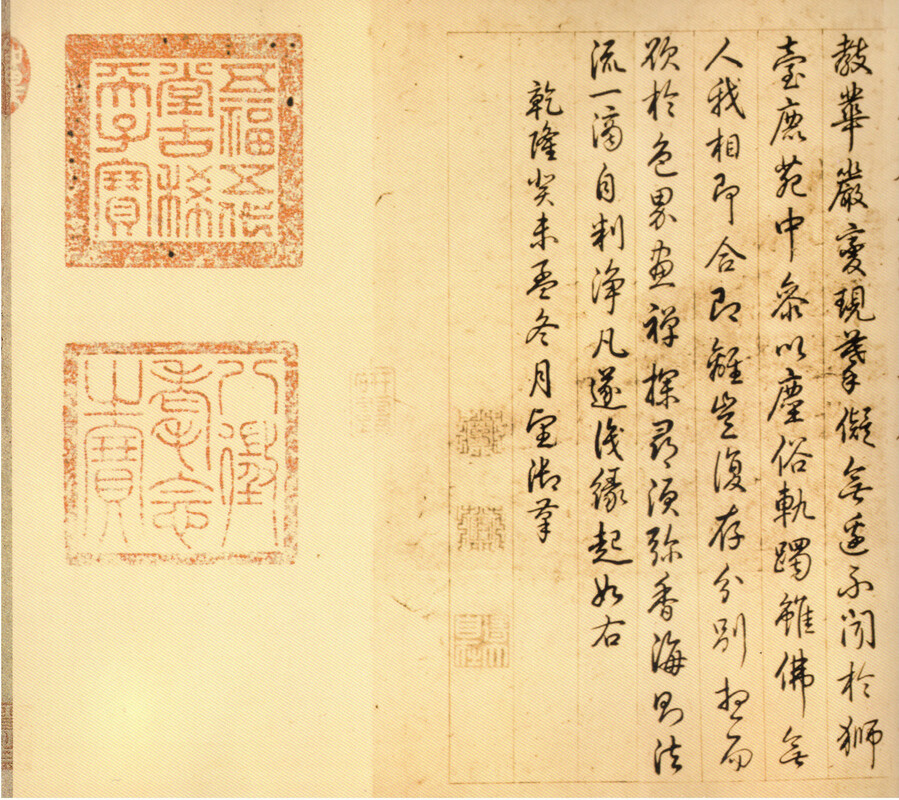 教華嚴變現摹擬無邊不聞於獅
臺鹿苑中參以塵俗軌躅雖佛無
人我相即合即離豈復存分別想而
欲於色界畫禪探尋須彌香海則法
流一滴自判淨凡遂識緣起如右
乾隆癸未孟冬月望御筆
五福五代
堂古稀
天子寶
八徵
耄念
之寶